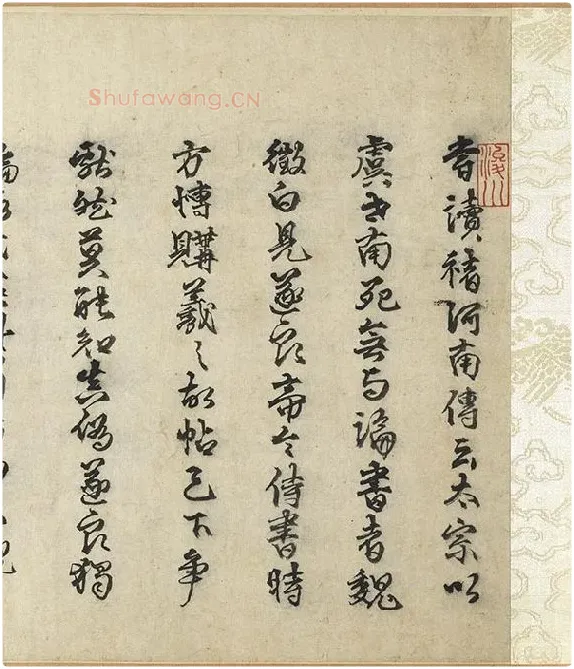 Shufawang.CN
昔讀褚河南傳云太宗以
虞世南死無与論書者魏
徵白見遂良帝令侍書時
方博購羲之故帖天下爭
獻然莫能知真偽遂良獨